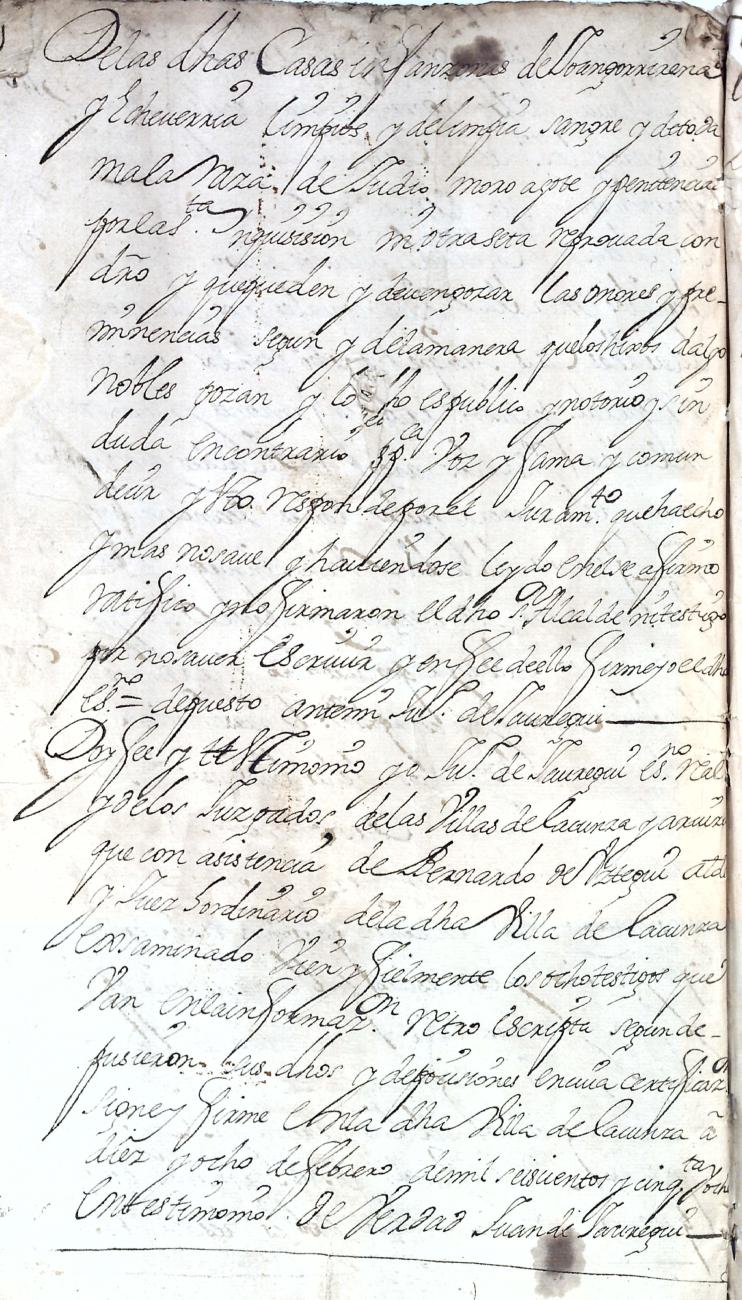 De las dhas Casas infanzonas de Ybangorrirena
y Echeverria limpios y de limpia sangre y de toda
mala raza de Judio moro agote y penitencia
por la sta. ynquisision ni otra seta reprouada con
dro y que pueden y deven gozar las onores y pre-
minencias segun y de la manera que los hixos dalgo
nobles gozan y lo sso es publico y notorio y sin
duda en contrario pca Voz y fama y comun
decir y esto responde por el Juramto. que ha echo
y mas no saue y hauiendose leydo en el se afirmo
ratifico y no firmaron el dho sor. Alcalde ni testigo
por no sauer escriuir y en fee de ello firme yo el dho
esno = depuesto ante mi Ju. de Jauregui
Doy fee y testimonio yo Ju. de Jauregui esno. real
y de los Juzgados de las Villas de lacunza y aruizu
que con asistencia de Bernardo de Yztegui alcde
y Juez hordinario de la dha Villa de lacunza
exsaminado Vien y fielmente los ocho testigos que
Van en la informazon. retro escripta segun de-
pusieron sus dhos y deposiciones en cuia certificazon
signe y firme en la dha Villa de lacunza a
diez y ocho de febrero de mil seiscientos y cinqta y ocho
En testimonio de Verdad Juan de Jauregui